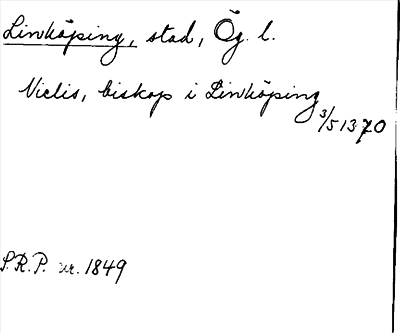 Linköping, stad, Ög. l.
Niclis, biskop i Linköping
3/5 1370
S.R.P. nr. 1849